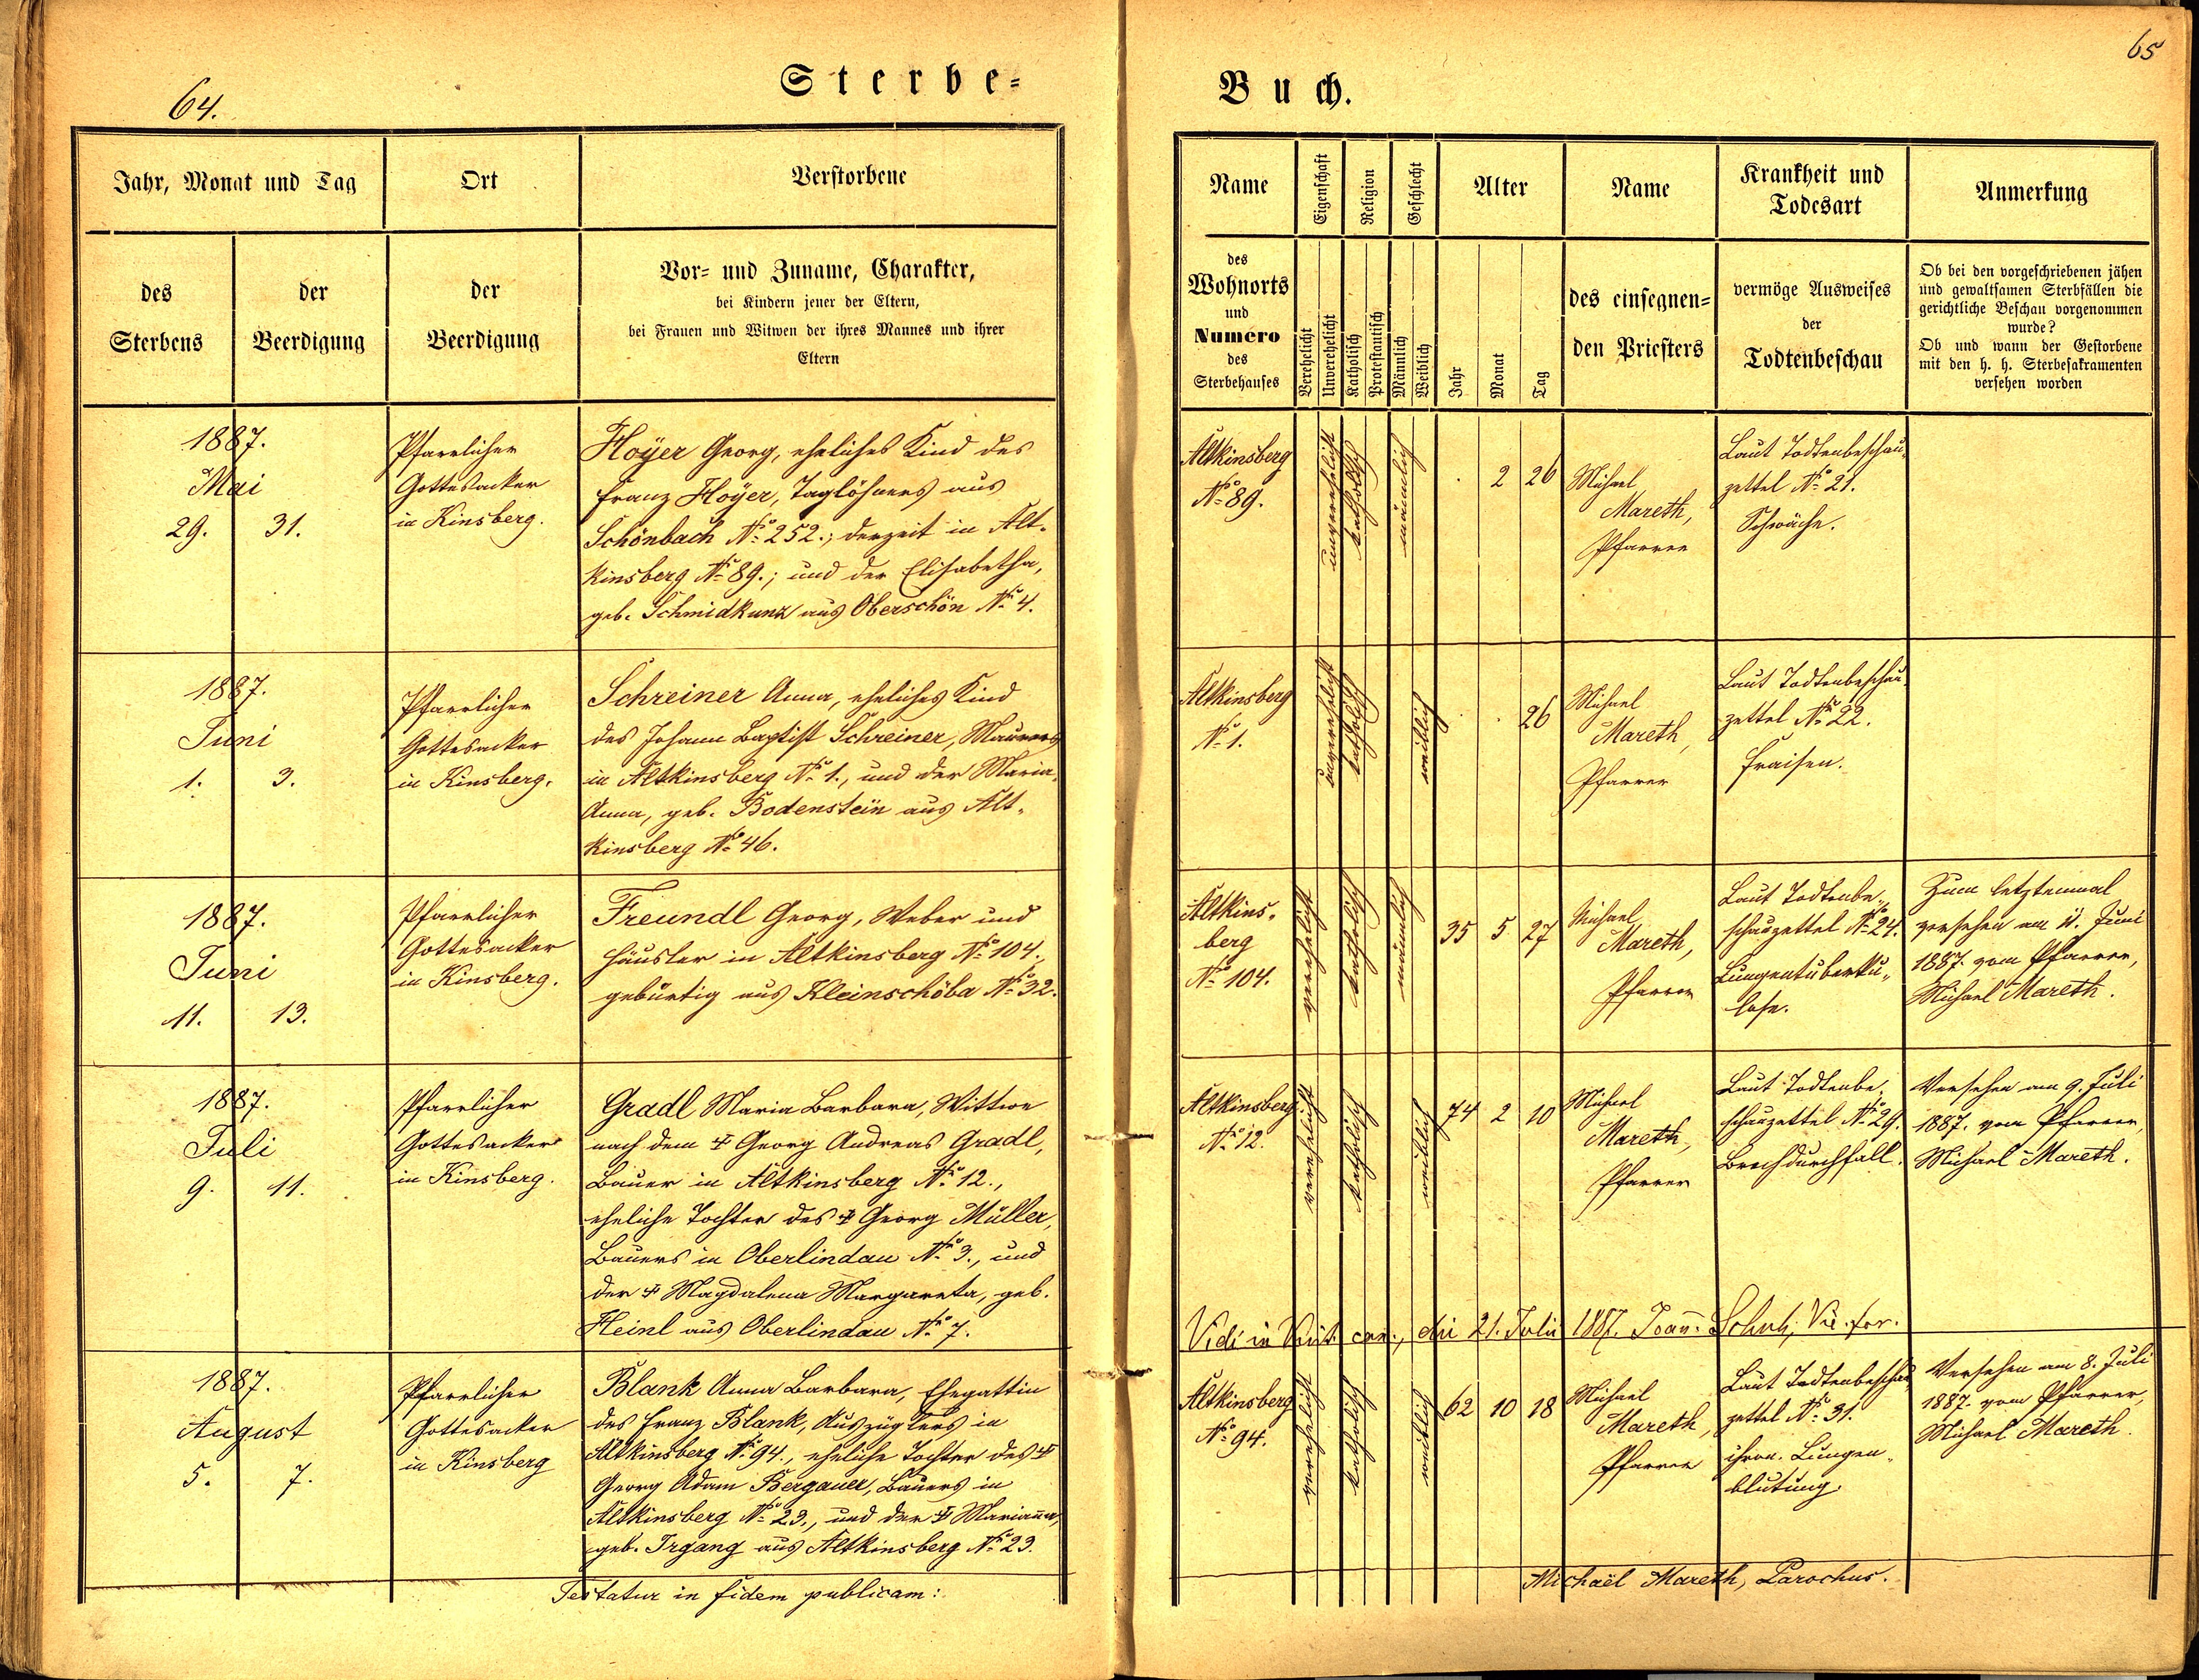 64.
Sterbe=
Jahr, Monat und Tag
Ort
Verstorbene
des
Sterbens
der
Beerdigung
der
Beerdigung
Vor= und Zuname, Charakter,
bei Kindern jener der Eltern,
bei Frauen und Witwen der ihres Mannes und ihrer
Eltern
1887.
Mai
29. 31.
Pfarrlicher
Gottesacker
in Kinsberg.
Hoÿer Georg, eheliches Kind des
Franz Hoÿer, Taglöhners aus
Schönbach No 252.; derzeit in Alt-
kinsberg No 89.; und der Elisabetha,
geb. Schmidkunz aus Oberschön No 4.
1887.
Juni
1. 3.
Pfarrlicher
Gottesacker
in Kinsberg.
Schreiner Anna, eheliches Kind
des Johann Baptist Schreiner, Maurers
in Altkinsberg No 1., und der Maria
Anna, geb. Bodenstein aus Alt-
kinsberg No 46.
1887.
Juni
11. 13.
Pfarrlicher
Gottesacker
in Kinsberg.
Freundl Georg, Weber und
Häusler in Altkinsberg No 104.,
gebürtig aus Kleinschöba No 32.
1887.
Juli
9. 11.
Pfarrlicher
Gottesacker
in Kinsberg.
Gradl Maria Barbara, Wittwe
nach dem ‡ Georg Andreas Gradl,
Bauer in Altkinsberg No 12.,
eheliche Tochter des ‡ Georg Müller,
Bauers in Oberlindau No 3., und
der ‡ Magdalena Margareta, geb.
Heinl aus Oberlindau No 7.
1887.
August
5. 7.
Pfarrlicher
Gottesacker
in Kinsberg
Blank Anna Barbara, Ehegattin
des Franz Blank, Auszüglers in
Altkinsberg No 94., eheliche Tochter des ‡
Georg Adam Bergauer, Bauers in
Altkinsberg No 23., und der ‡ Marianna,
geb. Irgang aus Altkinsberg No 23.
Testatur in fidem publicam:
65
Buch.
Name
Eigenschaft
Religion
Geschlecht
Alter
Name
Krankheit und
Todesart
Anmerkung
des
Wohnorts
und
Numero
des
Sterbehauses
Verehelicht
Unverehelicht
Katholisch
Protestantisch
Männlich
Weiblich
Jahr
Monat
Tag
des einsegnen=
den Priesters
vermöge Ausweises
der
Todtenbeschau
Ob bei den vorgeschriebenen jähen
und gewaltsamen Sterbfällen die
gerichtliche Beschau vorgenommen
wurde?
Ob und wann der Gestorbene
mit den h. h. Sterbesakramenten
versehen worden
Altkinsberg
No 89.
unverehelicht
katholisch
männlich
. 2 26
Michael
Mareth,
Pfarrer
Laut Todtenbeschau-
zettel No 21.
Schwäche.
Altkinsberg
No 1.
unverehelicht
katholisch
weiblich
. . 26
Michael
Mareth,
Pfarrer
Laut Todtenbeschau-
zettel No 22.
Fraisen.
Altkins-
berg
No 104.
verehelicht
katholisch
männlich
35 5 27
Michael
Mareth,
Pfarrer
Laut Todtenbe-
schauzettel No 24.
Lungentuberku-
lose.
Zum letztenmal
versehen am 11. Juni
1887. vom Pfarrer,
Michael Mareth.
Altkinsberg
No 12.
verehelicht
katholisch
weiblich
74 2 10
Michael
Mareth,
Pfarrer
Laut Todtenbe-
schauzettel No 29.
Brechdurchfall.
Versehen am 9. Juli
1887. vom Pfarrer,
Michael Mareth.
Vidi in can., die 21. Julii 1887. Joan. Vic. for.
Altkinsberg
No 94.
verehelicht
katholisch
weiblich
62 10 18
Michael
Mareth,
Pfarrer
Laut Todtenbeschau-
zettel No 31.
chron. Lungen-
blutung.
Versehen am 8. Juli
1887. vom Pfarrer,
Michael Mareth.
Michaël Mareth, Parochus.